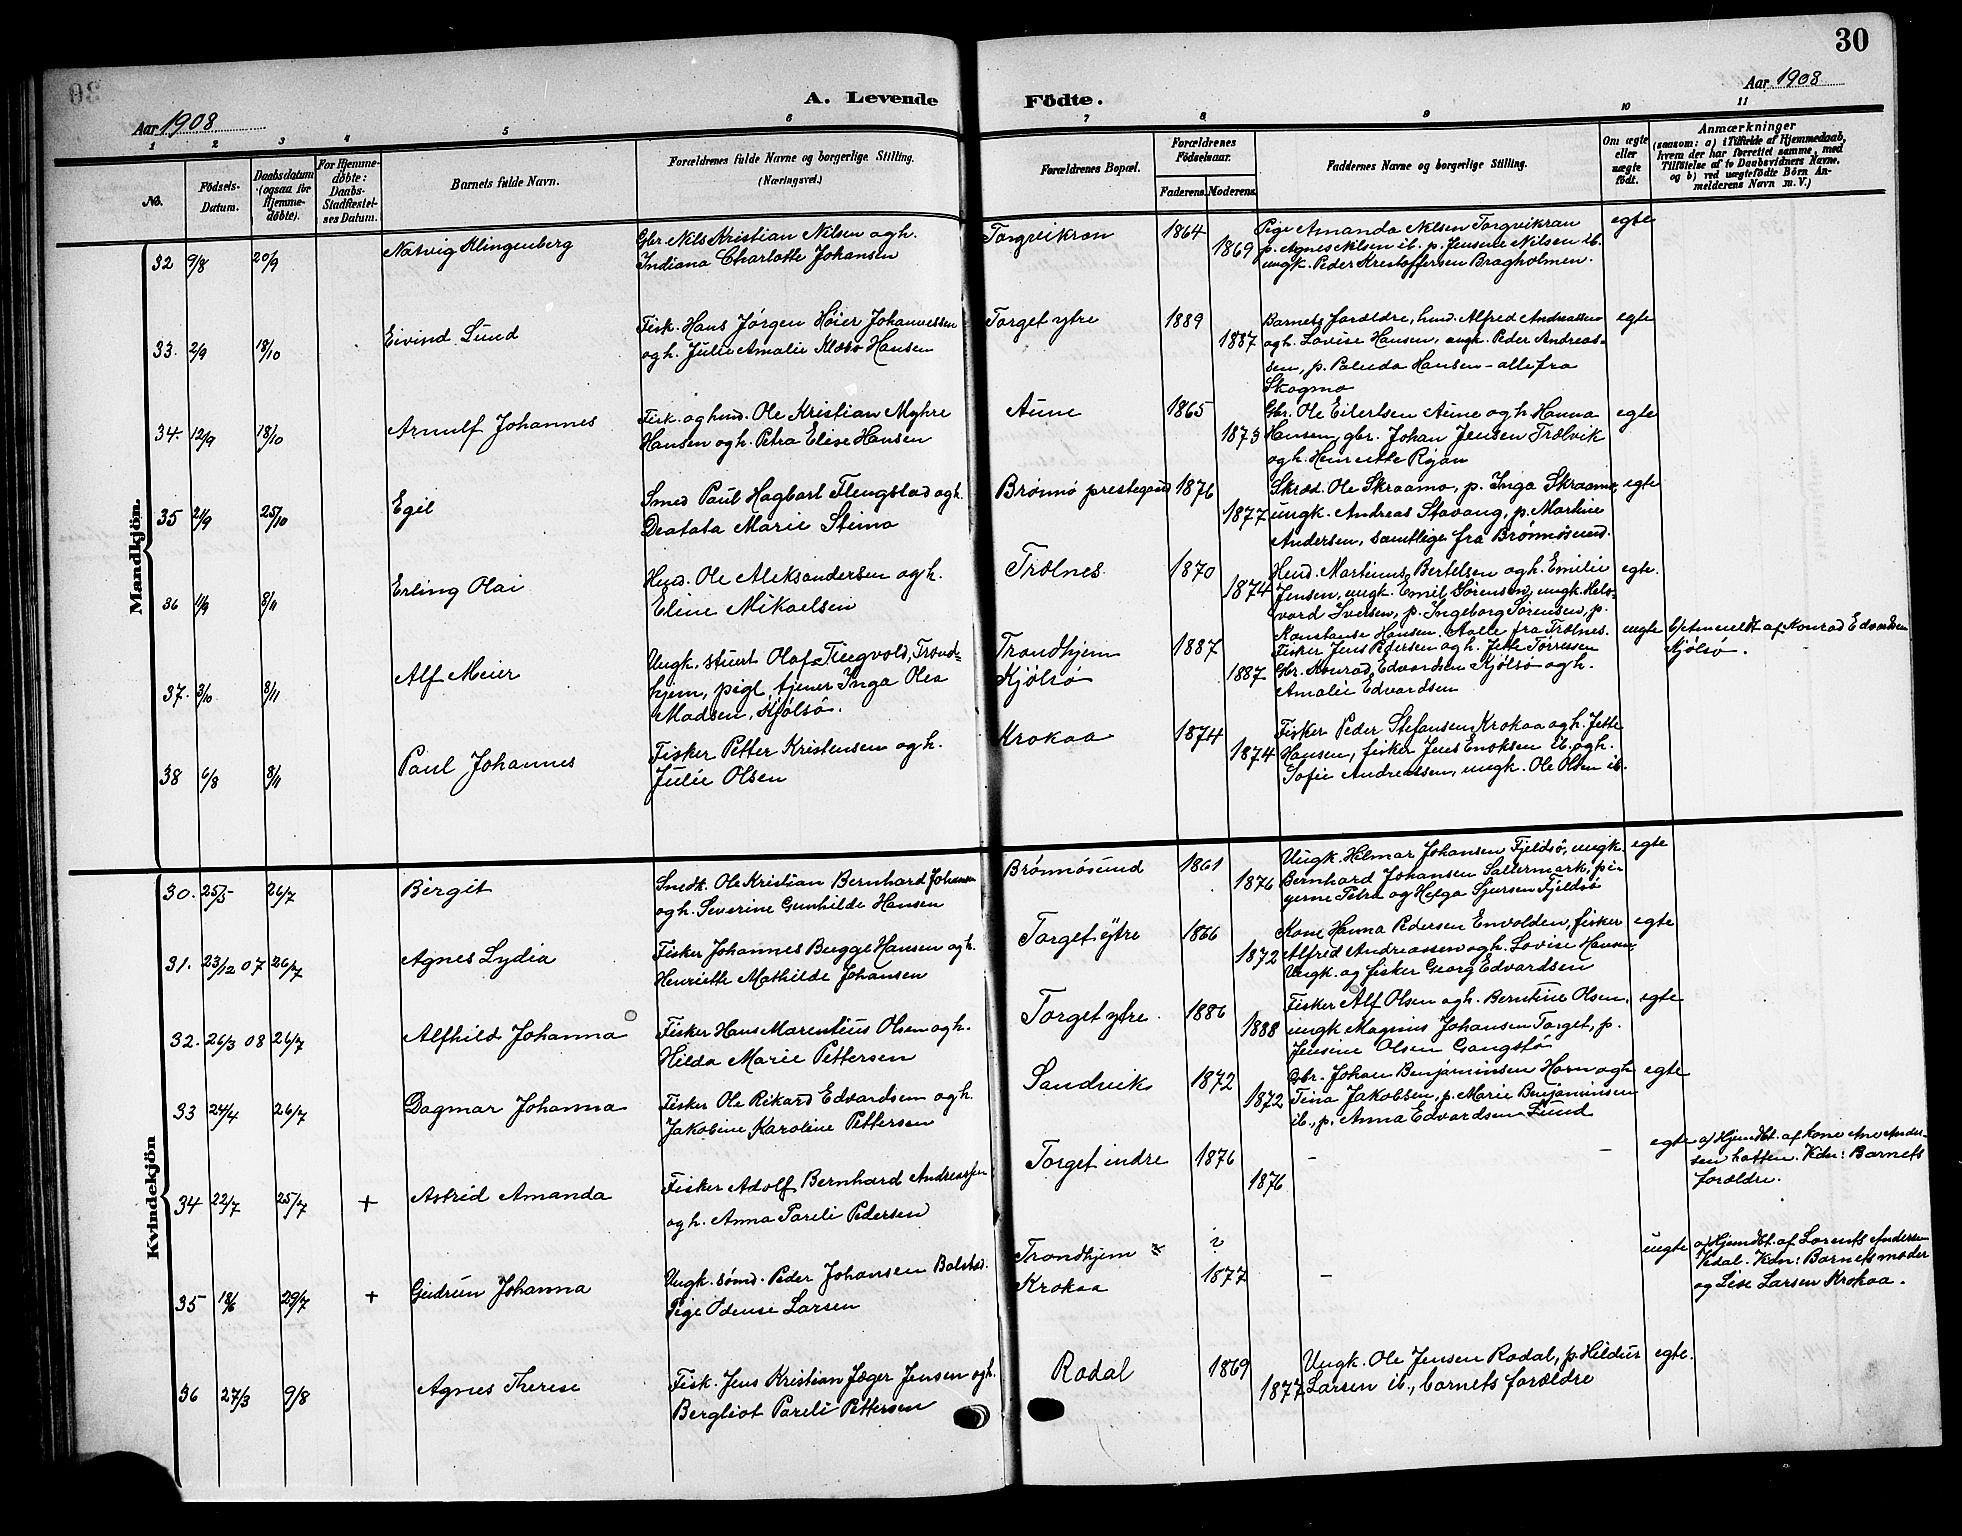 30
Aar 1908
A. Levende
Födte.
Aar 1908
1 2 3 4 5 6 7 8 9 10 11
No.
Födsels-Datum.
Daabsdatum (ogsaa for Hjemmedöbte).
For Hjemmedöbte: Daabs-Stadfæstelses Datum.
Barnets fulde Navn.
Forældrenes fulde Navne og borgerlige Stilling.
(Næringsvei.)
Forældrenes Bopæl.
Forældrenes Födselsaar.
Faderens. Moderens.
Faddernes Navne og borgerlige Stilling.
Om ægte eller uægte født.
Anmærkninger
(saasom: a) i Tilfælde af Hjemmedaab,
hvem der har forrettet samme, med
Tilføielse af to Daabsvidners Navne,
og b) ved uægtefödte Börn An-
melderens Navn m. V.)
Mandkjön.
32 9/8 20/9 Natvig Klingenberg
Gbr Nils Kristian Nilsen og h.
Indiana Charlotte Johansen
Torgvikran 1864 1869
Pige Amanda Nilsen Torgvikran
p. Agnes Nilsen ib. p. Jensine Nilsen ib.
ungk. Peder Kristoffersen Bragholmen.
egte
33. 2/9 18/10 Eivind Lund
Fisk. Hans Jørgen Høier Johannessen
og h. Julie Amalie Klæbo Hansen
Torget ytre 1889 1887
Barnets forældre, hmd. Alfred Andreassen
og h. Lovise Hansen, ungk. Peder Andreas-
sen, p. Palida Hansen - alle fra
Skogmo
egte
34. 12/9 18/10 Arnulf Johannes
Fisk. og hmd. Ole Kristian Myhre
Hansen og h. Petra Elise Hansen
Aune 1865 1873
Gbr. Ole Eilertsen Aune og h. Hanna
Hansen, gbr. Johan Jensen Trælvik
og h. Henriette Røjan
egte
35 21/9 25/10 Egil
Smed Paul Hagbart Flengstad og h.
Deatata Marie Stimo
Brønnø prestegaard 1876 1877
Skræd. Ole Skraamo, p. Inga Skraamo,
ungk. Andreas Stavang, p. Martine
Andersen, samtlige fra Brønnøsund.
egte
36 11/9 8/11 Erling Olai
Hmd. Ole Aleksandersen og h.
Eline Mikaelsen
Trælnes. 1870 1874
Hmd. Martinus Bertelsen og h. Emilie
Jensen, ungk. Emil Sørensen, ungk. Hels-
vard Iversen, p. Ingeborg Sørensen, p.
Konstanse Hansen. Aalle fra Trælnes.
egte.
37. 3/10 8/11 Alf Meier
Ungk. stuert Olaf Tingvold, Trond-
hjem, pige, tjener Inga Olea
Madsen, Kjølsø.
Trondhjem
Kjølsø
1887 1887
Fisker Jens Pedersen og h. Jette Tørresen
Gbr. Konrad Edvardsen Kjølsø og h.
Amalie Edvardsen
uegte
b/ Anmeldt af Konrad Edvardsen
Kjølsø.
38 6/8 8/11 Paul Johannes
Fisker Petter Kristensen og h.
Julie Olsen
Krokaa 1874 1874
Fisker Peder Stefansen Krokaa og h. Jette
Hansen, fisker Jens Enoksen ib. og h.
Sofie Andreassen, ungk. Ole Olsen ib.
Kvindekjön
30. 25/5 26/7 Birgit
Smedk. Ole Kristian Bernhard Johansen
og h. Severine Gunhilde Hansen
Brønnøsund 1861 1876
Ungk. Hilmar Johansen Fjeldsø, ungk
Bernhard Johansen Saltermark, pi-
gerne Petra og Helga Sjursen Fjeldsø
egte
31. 23/12 07 26/7 Agnes Lydia
Fisker Johannes Bugge Hansen og h.
Henriette Mathilde Johansen
Torget ytre 1866 1872
Kone Hanna Pedersen Envolden, fisker
Alfred Andreassen og h. Lovise Hansen
Ungk. og fisker Georg Edvardsen
egte
32. 26/3 08 26/7 Alfhild Johanna
Fisker Hans Marentius Olsen og h.
Hilda Marie Pettersen
Torget ytre. 1886 1888
Fisker Alf Olsen og h. Berntine Olsen,
ungk Magnus Johansen Torget, p.
Jensine Olsen Gangstø
egte
33 24/4 26/7 Dagmar Johanna
Fisker Ole Rikard Edvardsen og h.
Jakobine Karoline Pettersen
Sandvik 1872 1872
Gbr. Johan Benjaminsen Horn og h
Tina Jakobsen, p. Marie Benjaminsen
ib., p. Anna Edvardsen Lund
egte
34 22/7 25/7 + Astrid Amanda
Fisker Adolf Bernhard Andreassen
og h. Anna Pareli Pedersen
Torget indre 1876 1876 - -
egte
a/ Hjemdbt. af kone Ane Ander-
sen hatten. Vidn: Barnets
forældre.
35 18/6 29/7 + Gudrun Johanna
Ungk. sømd. Peder Johansen Bolstad.
Pige Odense Larsen
Trondhjem
Krokaa
? 1877 -
uegte
a/ Hjemdbt. af Lorents Andersen
Vidal. Vidn: Barnets moder
og Lise Larsen Krokaa.
36 27/3 9/8 Agnes Therese
Fisk. Jens Kristian Jæger Jensen og h.
Bergliot Pareli Pettersen
Rodal 1869 1877
Ungk. Ole Jensen Rodal, p. Hildur
Larsen ib., barnets forældre
egte.